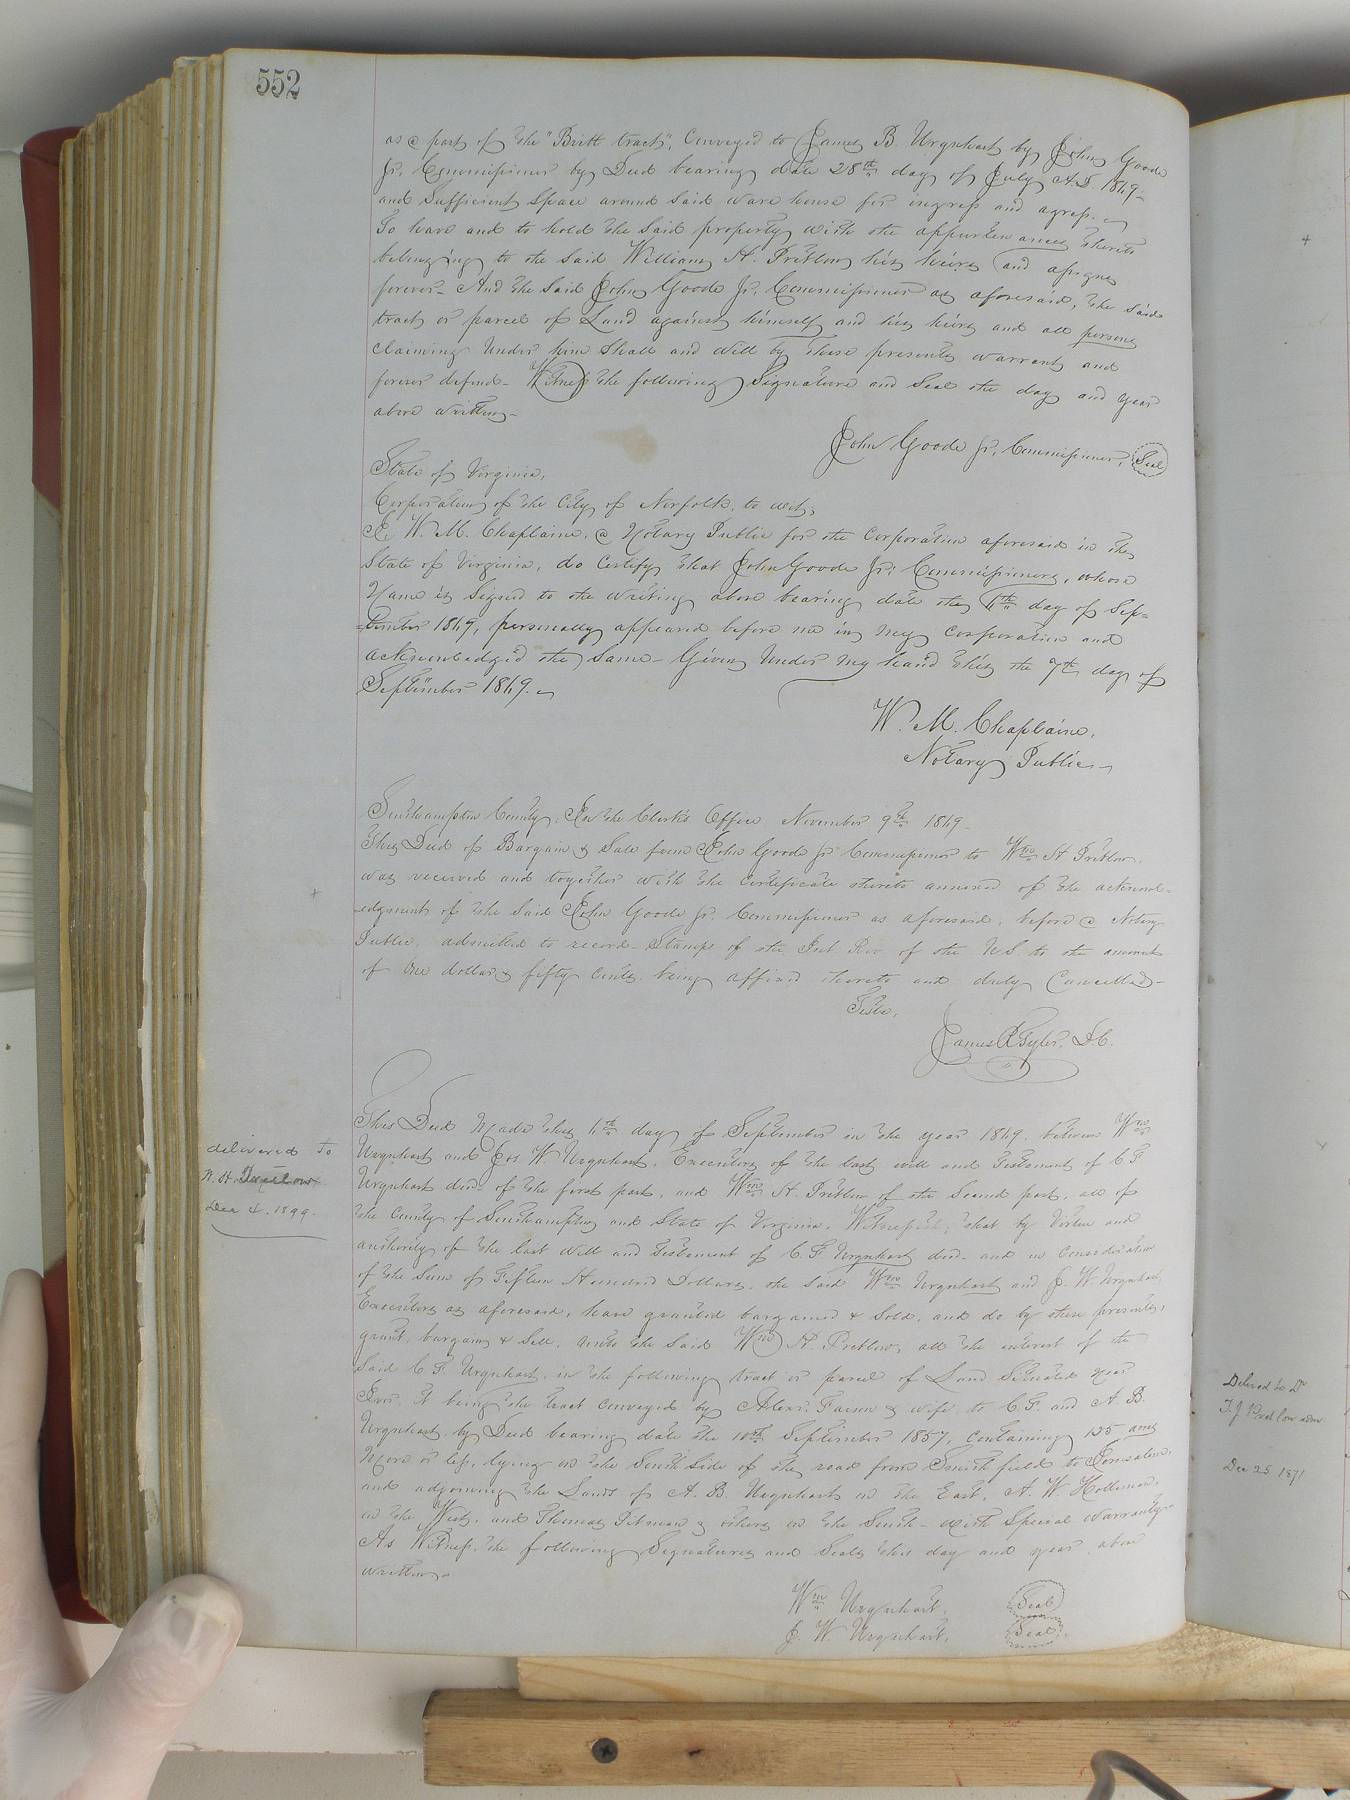 552
as a part of the "Britt tract", Conveyed to James B. Urquhart by John Goode
Jr. Commissioner by Deed bearing date 28th day of July A.D. 1869-
and Sufficient Space around Said ware house for ingress and egress.
To have and to hold the Said property with the appurtenances thereto
belonging to the Said William H. Pretlow his heirs and assigns
forever- And the Said John Goode Jr. Commissioner as aforesaid, the said
tract or parcel of Land against himself and his heirs and all persons
claiming Under him Shall and will by these presents warrant and
forever defend- Witness the following Signature and Seal the day and year
above written-
John Goode Jr. Commissioner, Seal
State of Virginia,
Corporation of the City of Norfolk, to wit;
I, W. M. Chaplaine, a Notary Public for the Corporation aforesaid in the
State of Virginia, do Certify that John Goode Jr. Commissioner, whose
Name is Signed to the writing above bearing date the 6th day of Sep=
=tember 1869, personally appeared before me in my Corporation and
acknowledged the Same- Given Under my hand this the 7th day of
September 1869.
W. M. Chaplaine,
Notary Public-
Southampton County, In the Clerk's Office November 9th 1869-
This Deed of Bargain & Sale from John Goode Jr Commissioner to Wm H Pretlow,
was received and together with the Certificate thereto annexed of the acknowl-
-edgment of the Said John Goode Jr. Commissioner as aforesaid, before a Notary
Public, admitted to record- Stamps of the Int Rev. of the U.S. to the amount
of One dollar & fifty cents being affixed thereto and duly Cancelled-
Teste,
James R Tyler, D.C.
This Deed Made this 6th day of September in the year 1869. between Wm
Urquhart and Jos. W. Urquhart, Executors of the last will and Testament of C F
Urquhart decd- of the first part, and Wm H. Pretlow of the Second part, all of
the County of Southampton and State of Virginia, Witnesseth; that by Virtue and
authority of the last Will and Testament of C. F. Urquhart decd- and in Consideration
of the Sum of Fifteen Hundred Dollars, the Said Wm Urquhart and J. W. Urquhart,
Executors as aforesaid, have granted bargained & Sold, and do by these presents,
grant, bargain & Sell, unto the Said Wm H. Pretlow, all the interest of the
Said C F. Urquhart, in the following tract or parcel of Land Situated near
Ivor, It being the tract Conveyed by Alexr. Faison & wife to C. F. and A. B.
Urquhart by Deed bearing date the 10th September 1857, Containing 125 acres
More or less, lying on the South Side of the road from Smithfield to Jerusalem,
and adjoining the Lands of A. B. Urquhart on the East, A. W. Holleman,
on the West, and Thomas Pitman & others on the South- with Special warranty-
As Witness the following Signatures and Seals this day and year above
written-
Wm Urquhart, Seal
J. W. Urquhart, Seal
delivered to
W. H. Pretlow
Dec 4. 1899.
Delived to Dr
T. J. Pretlow adm
Dec 25 1871